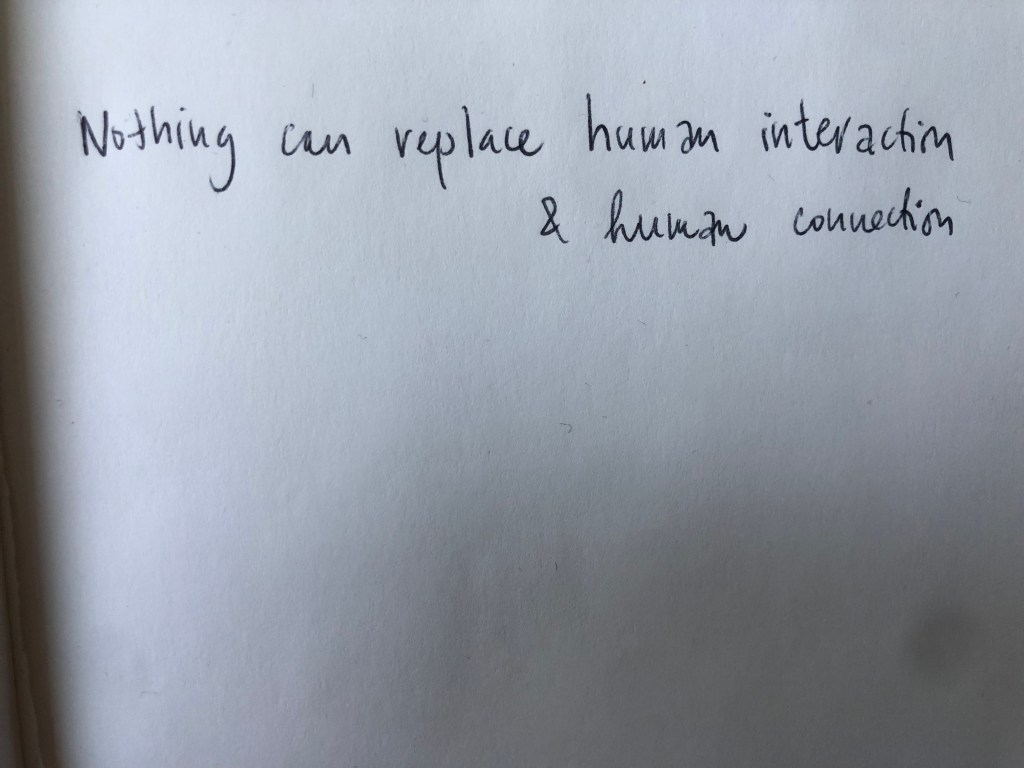 Nothing can replace human interaction
& human connection